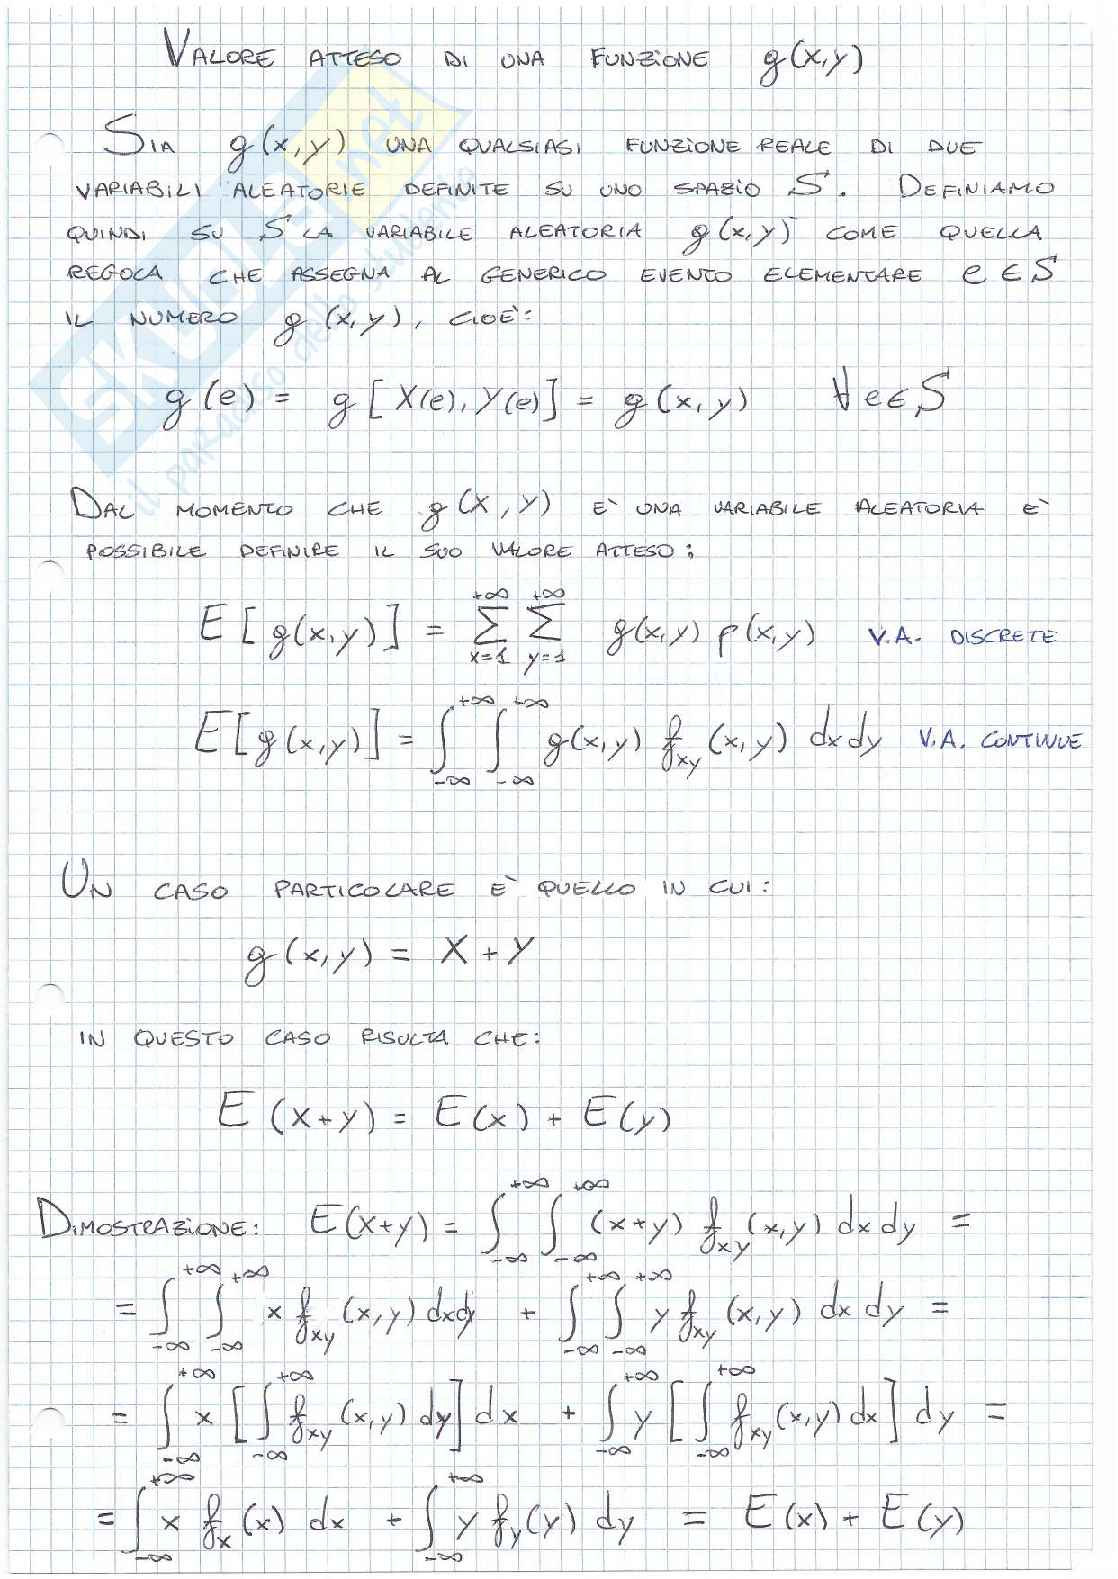 VALORE ATTESO DI UNA FUNZIONE g(x,y)
SIA g(x,y) UNA QUALSIASI FUNZIONE REALE DI DUE
VARIABILI ALEATORIE DEFINITE SU UNO SPAZIO S. DEFINIAMO
QUINDI SU S LA VARIABILE ALEATORIA g(x,y) COME QUELLA
REGOLA CHE ASSEGNA AL GENERICO EVENTO ELEMENTARE e ∈ S
IL NUMERO g(x,y), CIOÈ:
g(e) = g[X(e), Y(e)] = g(x,y) ∀ e ∈ S
DAL MOMENTO CHE g(X,Y) È UNA VARIABILE ALEATORIA È
POSSIBILE DEFINIRE IL SUO VALORE ATTESO:
E[g(x,y)] = ∑_{x=1}^{+∞} ∑_{y=1}^{+∞} g(x,y) p(x,y) V.A. DISCRETE
E[g(x,y)] = ∫_{-∞}^{+∞} ∫_{-∞}^{+∞} g(x,y) f_{xy}(x,y) dx dy V.A. CONTINUE
UN CASO PARTICOLARE È QUELLO IN CUI:
g(x,y) = X + Y
IN QUESTO CASO RISULTA CHE:
E(X+y) = E(x) + E(y)
DIMOSTRAZIONE: E(X+y) = ∫_{-∞}^{+∞} ∫_{-∞}^{+∞} (x+y) f_{xy}(x,y) dx dy =
= ∫_{-∞}^{+∞} ∫_{-∞}^{+∞} x f_{xy}(x,y) dxdy + ∫_{-∞}^{+∞} ∫_{-∞}^{+∞} y f_{xy}(x,y) dx dy =
= ∫_{-∞}^{+∞} x [∫_{-∞}^{+∞} f_{xy}(x,y) dy] dx + ∫_{-∞}^{+∞} y [∫_{-∞}^{+∞} f_{xy}(x,y) dx] dy =
= ∫_{-∞}^{+∞} x f_x(x) dx + ∫_{-∞}^{+∞} y f_y(y) dy = E(x) + E(y)
SKUOLA.net
il paradiso dello studente